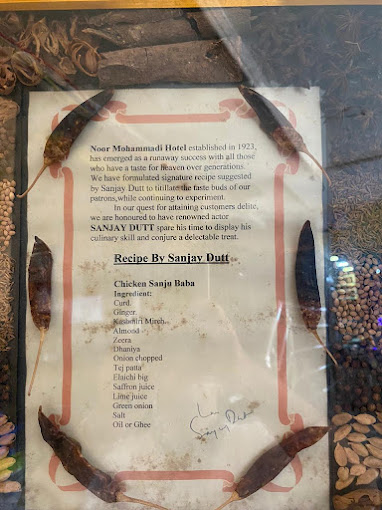 Noor Mohammadi Hotel established in 1923,
has emerged as a runaway success with all those
who have a taste for heaven over generations.
We have formulated signature recipe suggested
by Sanjay Dutt to titillate the taste buds of our
patrons,while continuing to experiment.
In our quest for attaining customers delite,
we are honoured to have renowned actor
SANJAY DUTT spare his time to display his
culinary skill and conjure a delectable treat.
Recipe By Sanjay Dutt
Chicken Sanju Baba
Ingredient:
Curd
Ginger
Kashmiri Mirch
Almond
Zeera
Dhaniya
Onion chopped
Tej patta
Elaichi big
Saffron juice
Lime juice
Green onion
Salt
Oil or Ghee
Sanjay Dutt